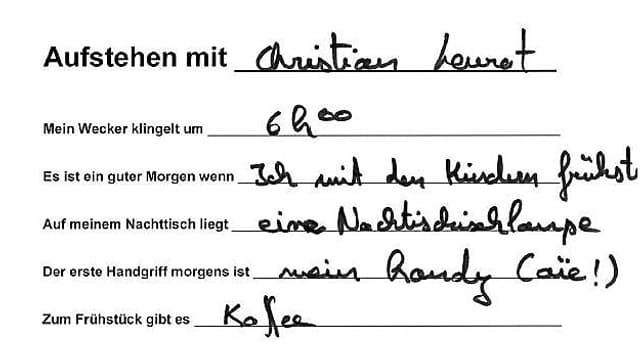 Aufstehen mit Christian Leurat
Mein Wecker klingelt um 6h00
Es ist ein guter Morgen wenn Ich mit den Kindern frühst
Auf meinem Nachttisch liegt eine Nachttischlampe
Der erste Handgriff morgens ist mein Handy (aïe!)
Zum Frühstück gibt es Kaffee